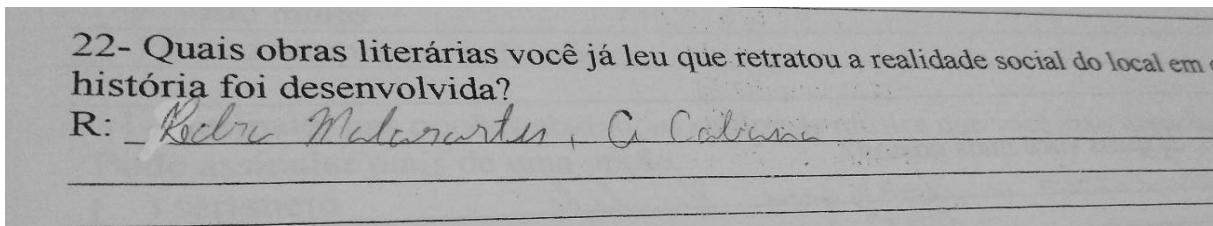 22- Quais obras literárias você já leu que retratou a realidade social do local em
história foi desenvolvida?
R: Pedro Malasartes, A Cabana